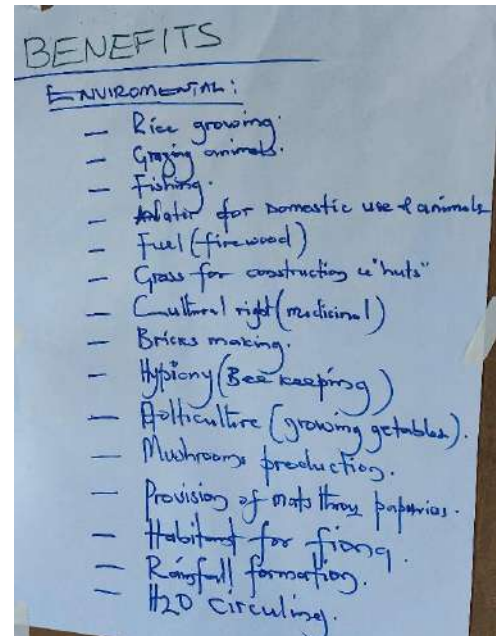 BENEFITS
ENVIROMENTAL:
— Rice growing.
— Grazing animals.
— Fishing.
— Water for Domestic use & animals
— Fuel (firewood)
— Grass for construction ie "huts"
— Cultural right (medicinal)
— Bricks making.
— Hypiany (Bee keeping)
— Holticulture (growing getables).
— Mushrooms production.
— Provision of mats throu
— Habitant for
— Rainfall formation.
— H20 circuling.